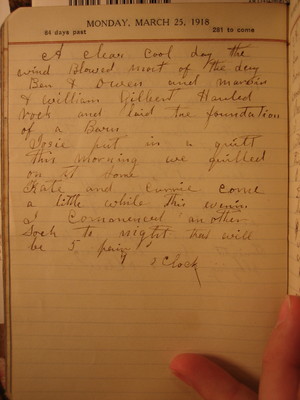 MONDAY, MARCH 25, 1918
84 days past 281 to come
A clear cool day the
wind Blowed most of the day
Ben & Owen and
& William Hilbert Hauled
rock and laid the foundation
of a Barn
put in a quilt
this morning we quilted
on it some
Kate and Carrie come
a little while this evenin
I Comanenced another
Sock to night that will
be 5 pair